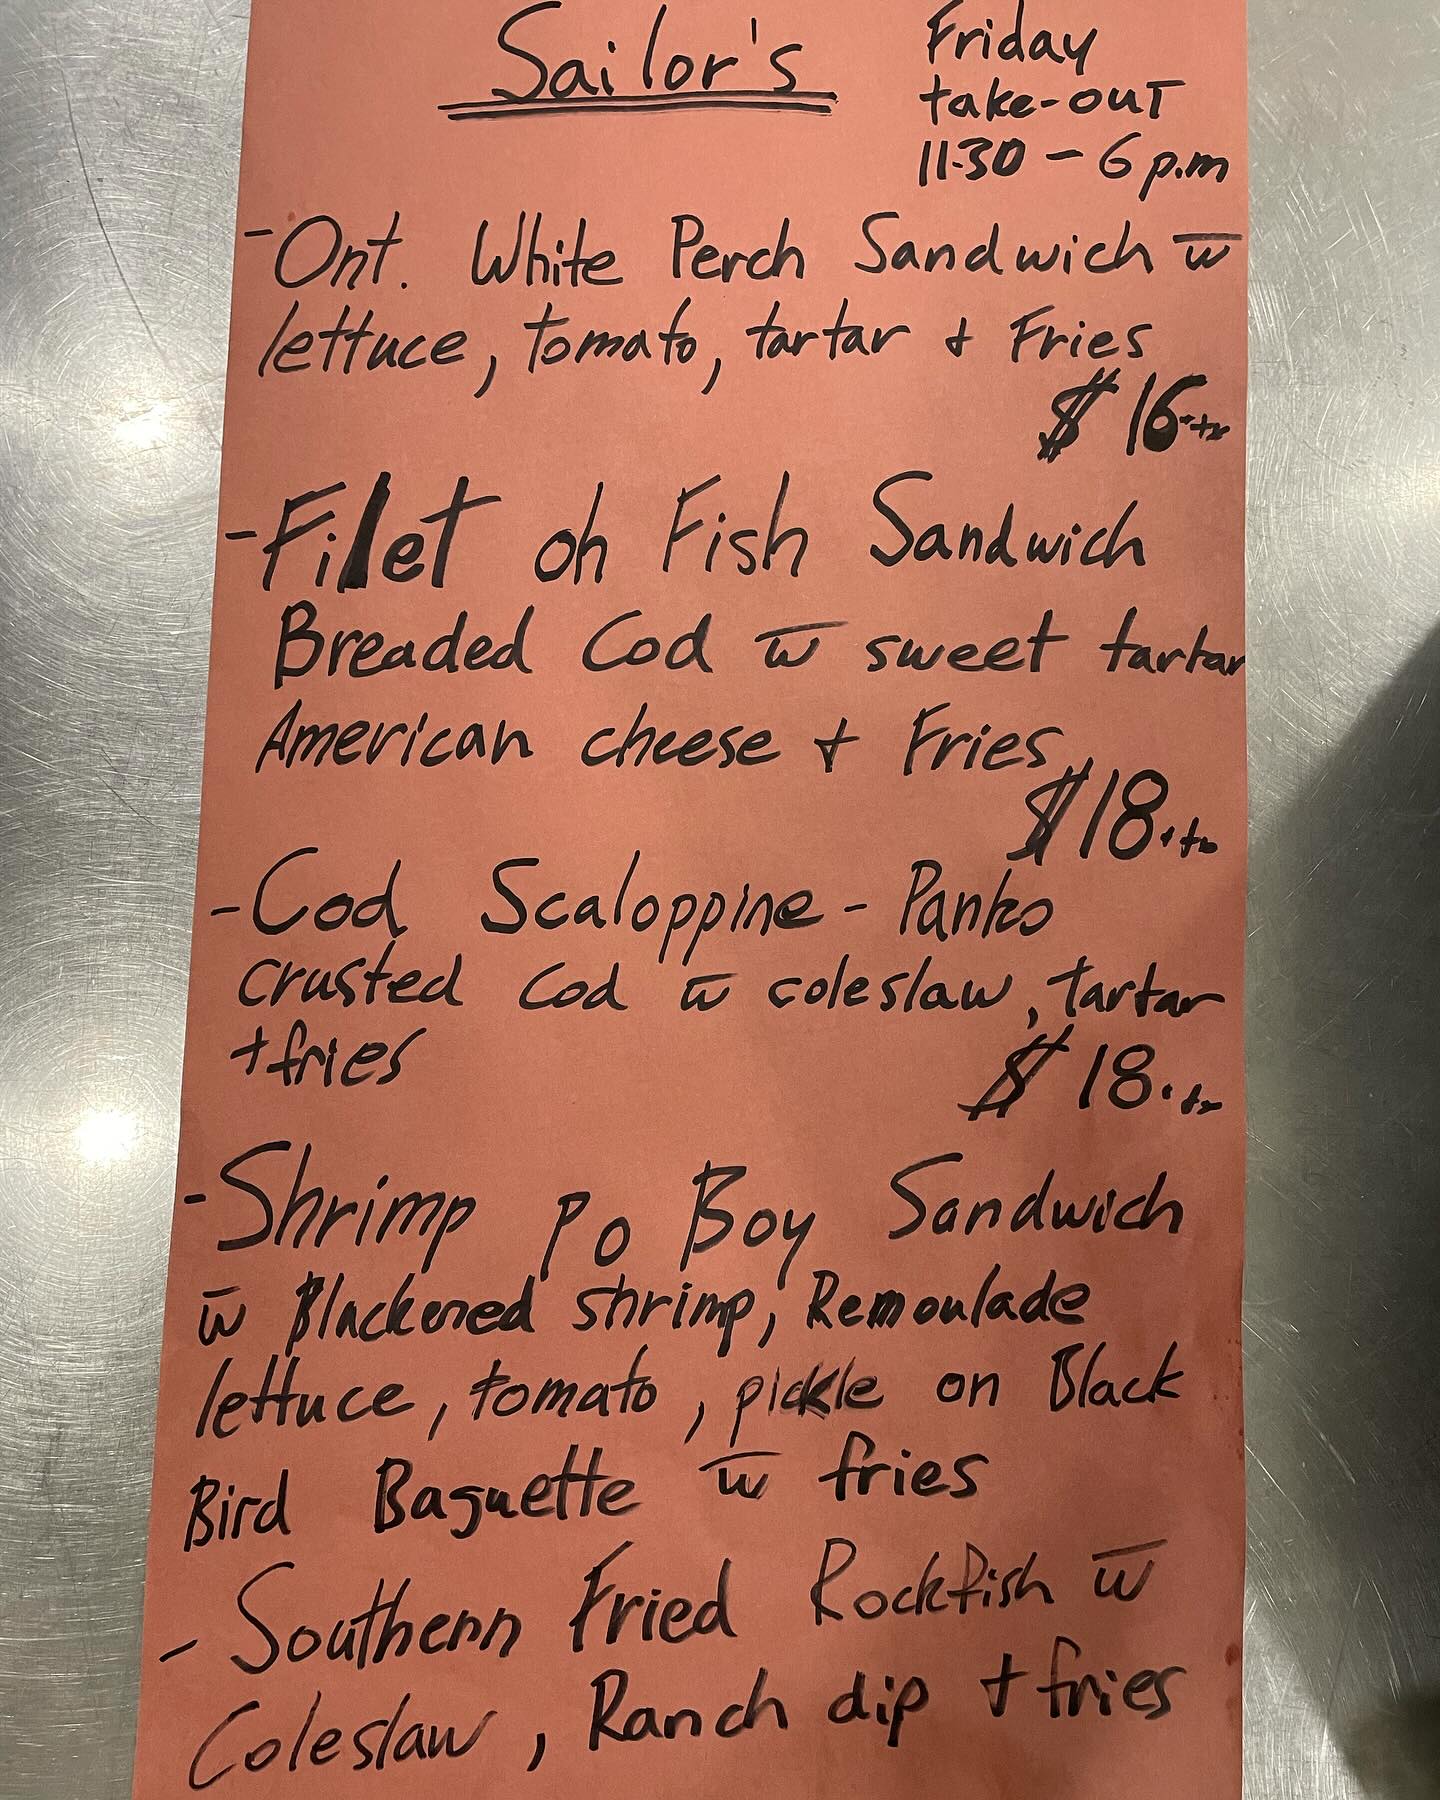 Sailor's
Friday
take-out
11:30 - 6 p.m
- Ont. White Perch Sandwich w̅
lettuce, tomato, tartar + Fries
$16 + tx
- Filet oh Fish Sandwich
Breaded Cod w̅ sweet tartar
American cheese + Fries
$18 + tx
- Cod Scaloppine - Panko
crusted Cod w̅ coleslaw, tartar
+ fries
$18 + tx
- Shrimp Po Boy Sandwich
w̅ Blackened shrimp, Remoulade
lettuce, tomato, pickle on Black
Bird Baguette w̅ fries
- Southern Fried Rockfish w̅
Coleslaw, Ranch dip + fries